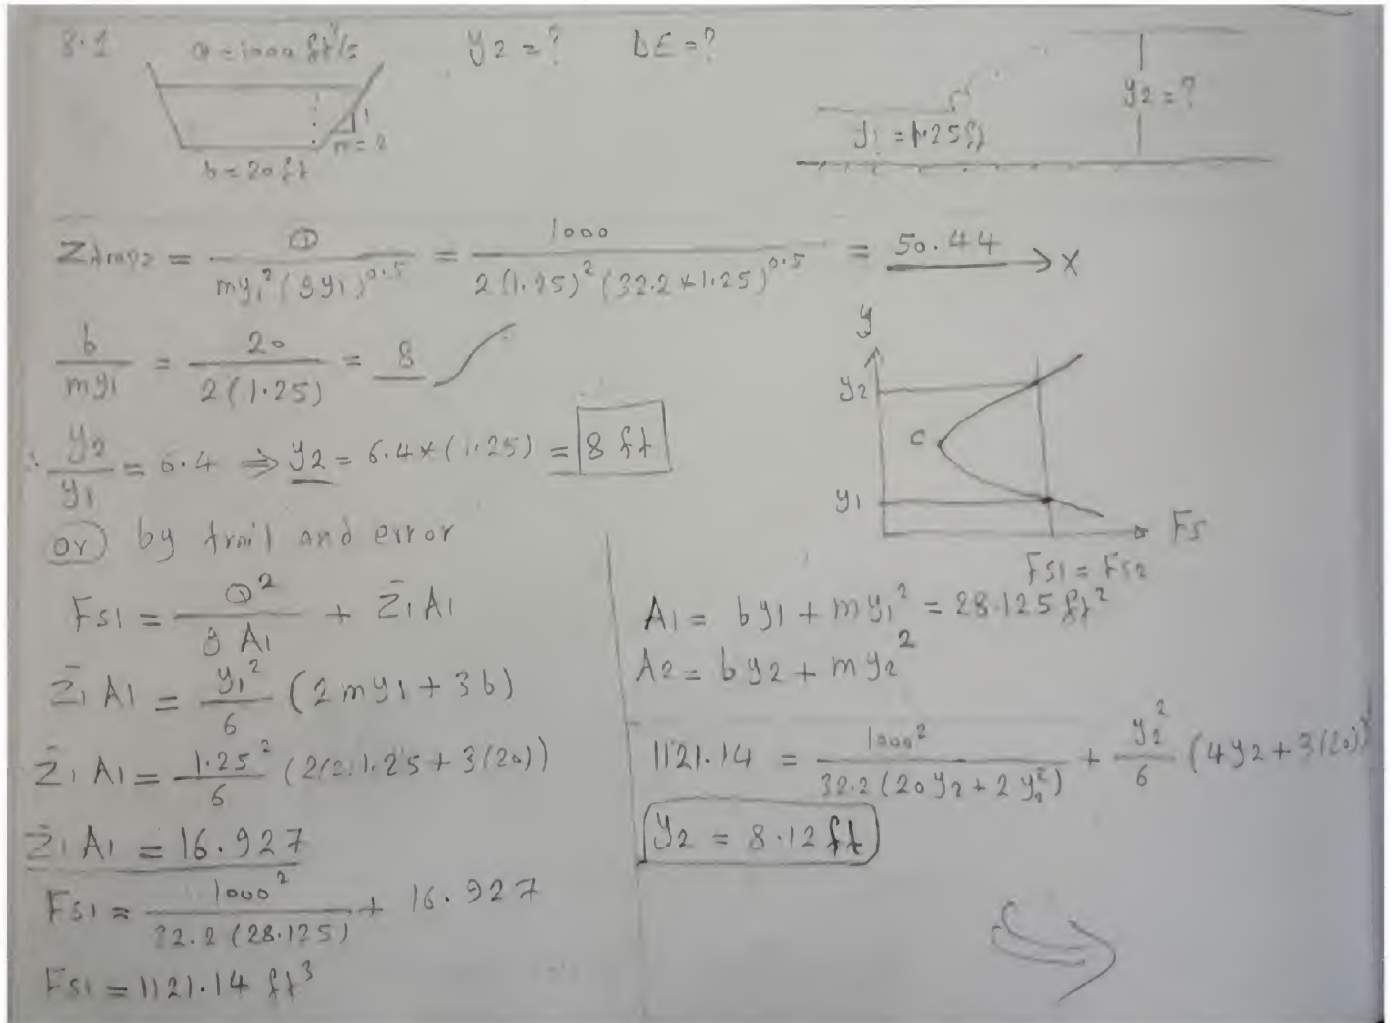 8.1 Q = 1000 ft³/s y2 = ? ΔE = ?
1
m = 2
b = 20 ft
y1 = 1.25 ft
y2 = ?
Ztrapz = Q / my1²(gy1)^0.5 = 1000 / 2(1.25)²(32.2*1.25)^0.5 = 50.44 → X
b / my1 = 20 / 2(1.25) = 8
∴ y2 / y1 = 6.4 ⇒ y2 = 6.4*(1.25) = 8 ft
y
y2
C
y1
Fs
Fs1 = Fs2
or) by trail and error
Fs1 = Q² / g A1 + Z̄1 A1
Z̄1 A1 = y1² / 6 (2my1 + 3b)
Z̄1 A1 = 1.25² / 6 (2(2)1.25 + 3(20))
Z̄1 A1 = 16.927
Fs1 = 1000² / 32.2 (28.125) + 16.927
Fs1 = 1121.14 ft³
A1 = by1 + my1² = 28.125 ft²
A2 = by2 + my2²
1121.14 = 1000² / 32.2(20y2 + 2y2²) + y2² / 6 (4y2 + 3(20))
y2 = 8.12 ft